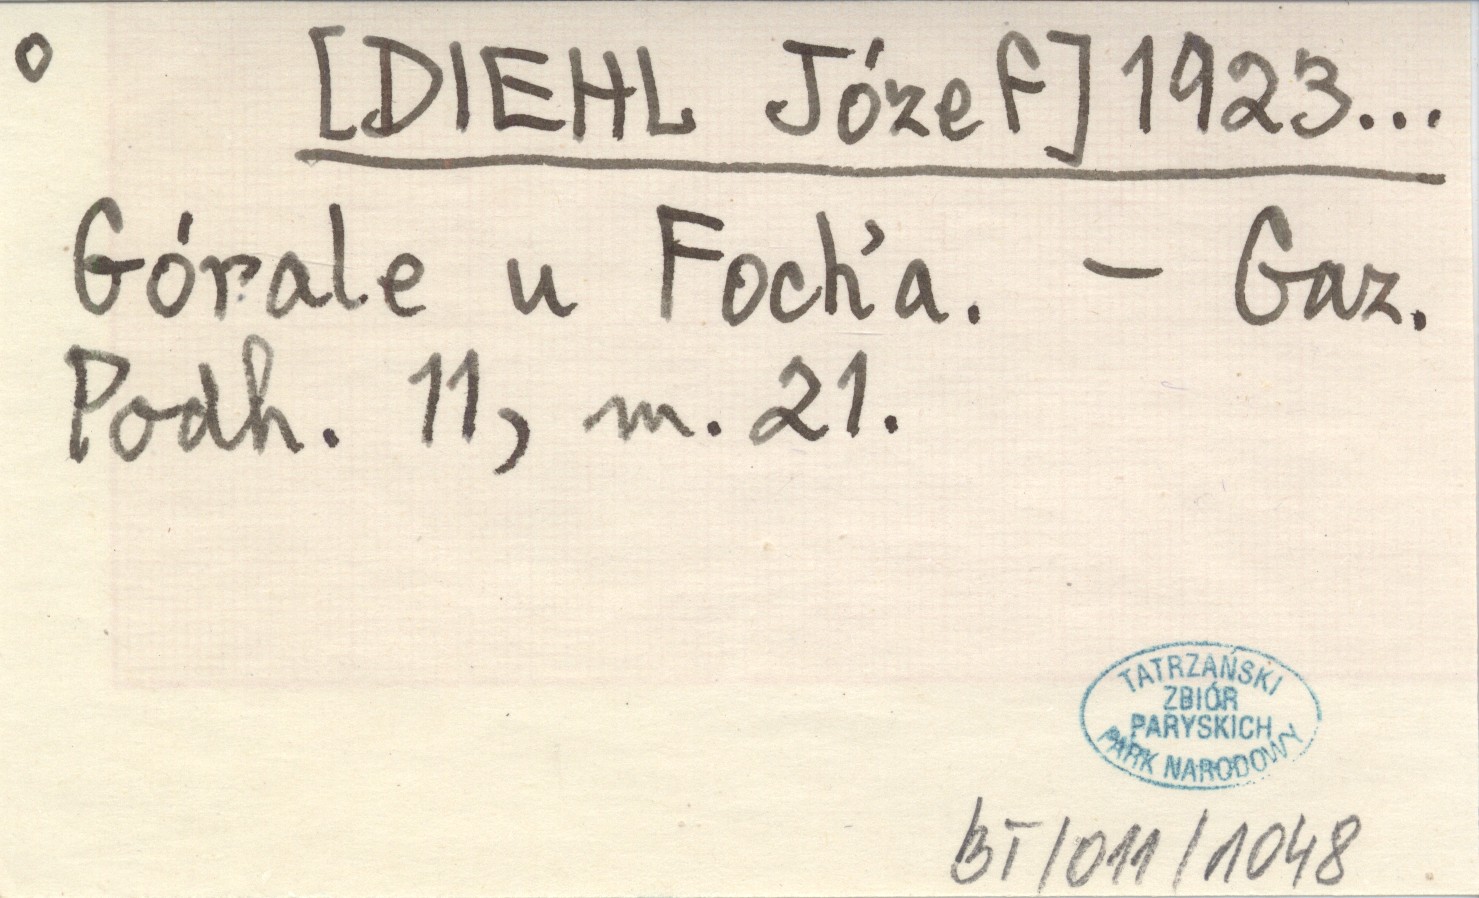 o [DIEHL Józef] 1923...
Górale u Foch'a. – Gaz.
Podh. 11, m. 21.
TATRZAŃSKI
ZBIÓR
PARYSKICH
PARK NARODOWY
BT/011/1048